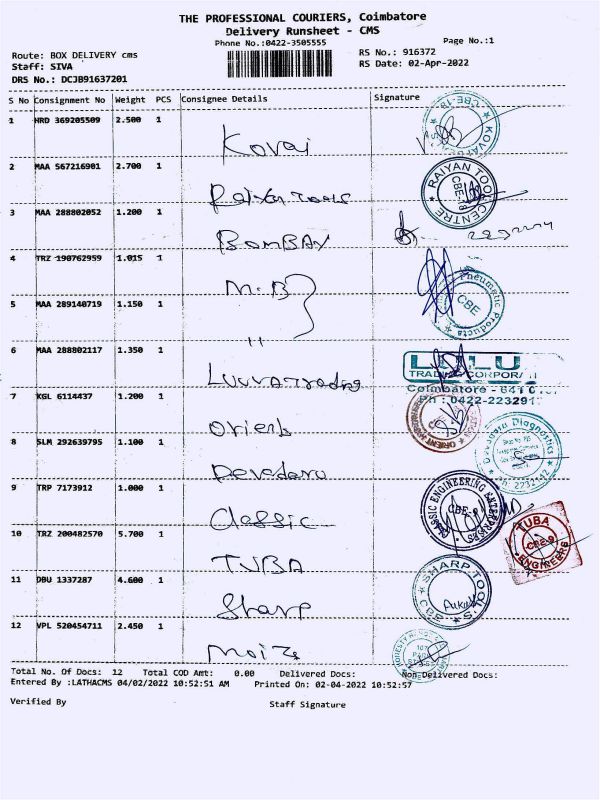 THE PROFESSIONAL COURIERS, Coimbatore
Delivery Runsheet - CMS
Phone No.:0422-3505555
Page No.:1
Route: BOX DELIVERY cms
RS No.: 916372
Staff: SIVA
RS Date: 02-Apr-2022
DRS No.: DCJB91637201
S No Consignment No Weight PCS Consignee Details Signature
1 HRD 369205509 2.500 1
Kovai
2 MAA 567216901 2.700 1
RAIYAN TOOL CENTRE CBE-18
Raiyan Tools
3 MAA 288802052 1.200 1
BOMBAY
4 TRZ 190762959 1.015 1
M.B
Pneumatic Products CBE
5 MAA 289140719 1.150 1
"
6 MAA 288802117 1.350 1
LULU
TRADING CORPORATI
Coimbatore - 641 0
Ph : 0422-22329
7 KGL 6114437 1.200 1
Orient
8 SLM 292639795 1.100 1
Devadaru
Devadaru Diagnostics
9 TRP 7173912 1.000 1
CLASSIC ENGINEERING ENTERPRISES CBE-9
Classic
10 TRZ 200482570 5.700 1
TUBA ENGINEERS CBE-9
TUBA
11 DBU 1337287 4.600 1
SHARP TOOLS CBE
Sharp
12 VPL 520454711 2.450 1
Total No. Of Docs: 12 Total COD Amt: 0.00 Delivered Docs: Non-Delivered Docs:
Entered By :LATHACMS 04/02/2022 10:52:51 AM Printed On: 02-04-2022 10:52:57
Verified By Staff Signature